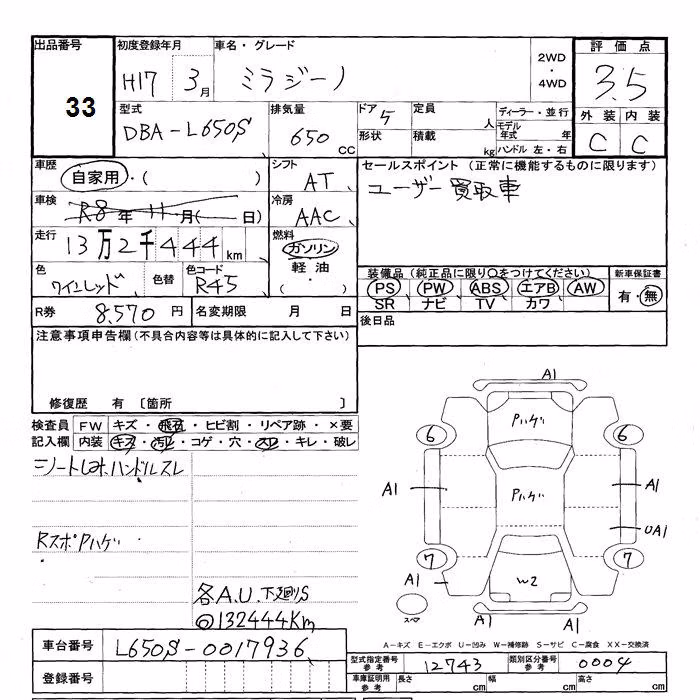 出品番号 初度登録年月 車名・グレード 2WD・4WD 評価点
33 H17 3月 ミラジーノ 3.5
型式 排気量 ドア 5 定員 人 ディーラー・並行 外装 内装
DBA-L650S 650 CC 形状 積載 kg モデル年式 年 ハンドル 左・右 C C
車歴 自家用・( ) シフト AT セールスポイント (正常に機能するものに限ります)
車検 R8年 11月( 日) 冷房 AAC ユーザー買取車
走行 13万2千444km 燃料 ガソリン 軽油 ( ・ )
色 ワインレッド 色替 色コード R45 装備品 (純正品に限り○をつけてください) 新車保証書
PS PW ABS エアB AW 有・無
SR ナビ TV カワ
R券 8,570円 名変期限 月 日 後日品
注意事項申告欄 (不具合内容等は具体的に記入して下さい)
修復歴 有 〔箇所 〕
検査員 FW キズ・飛石・ヒビ割・リペア跡・×要
記入欄 内装 キズ・汚レ・コゲ・穴・スレ・キレ・破レ
シートしみ、ハンドルスレ
RスポPハゲ
各A.U 下廻りS
◎132444Km
A1
Pハゲ
6 6
Pハゲ
A1 A1 A1
UA1
7 7
A1 W2 A1
スペア A1 A1
車台番号 L650S-0017936
登録番号
A-キズ E-エクボ U-凹み W-補修跡 S-サビ C-腐食 XX-交換済
型式指定番号 参考 12743 類別区分番号 参考 0004
車庫証明用 参考 長さ cm 幅 cm 高さ cm